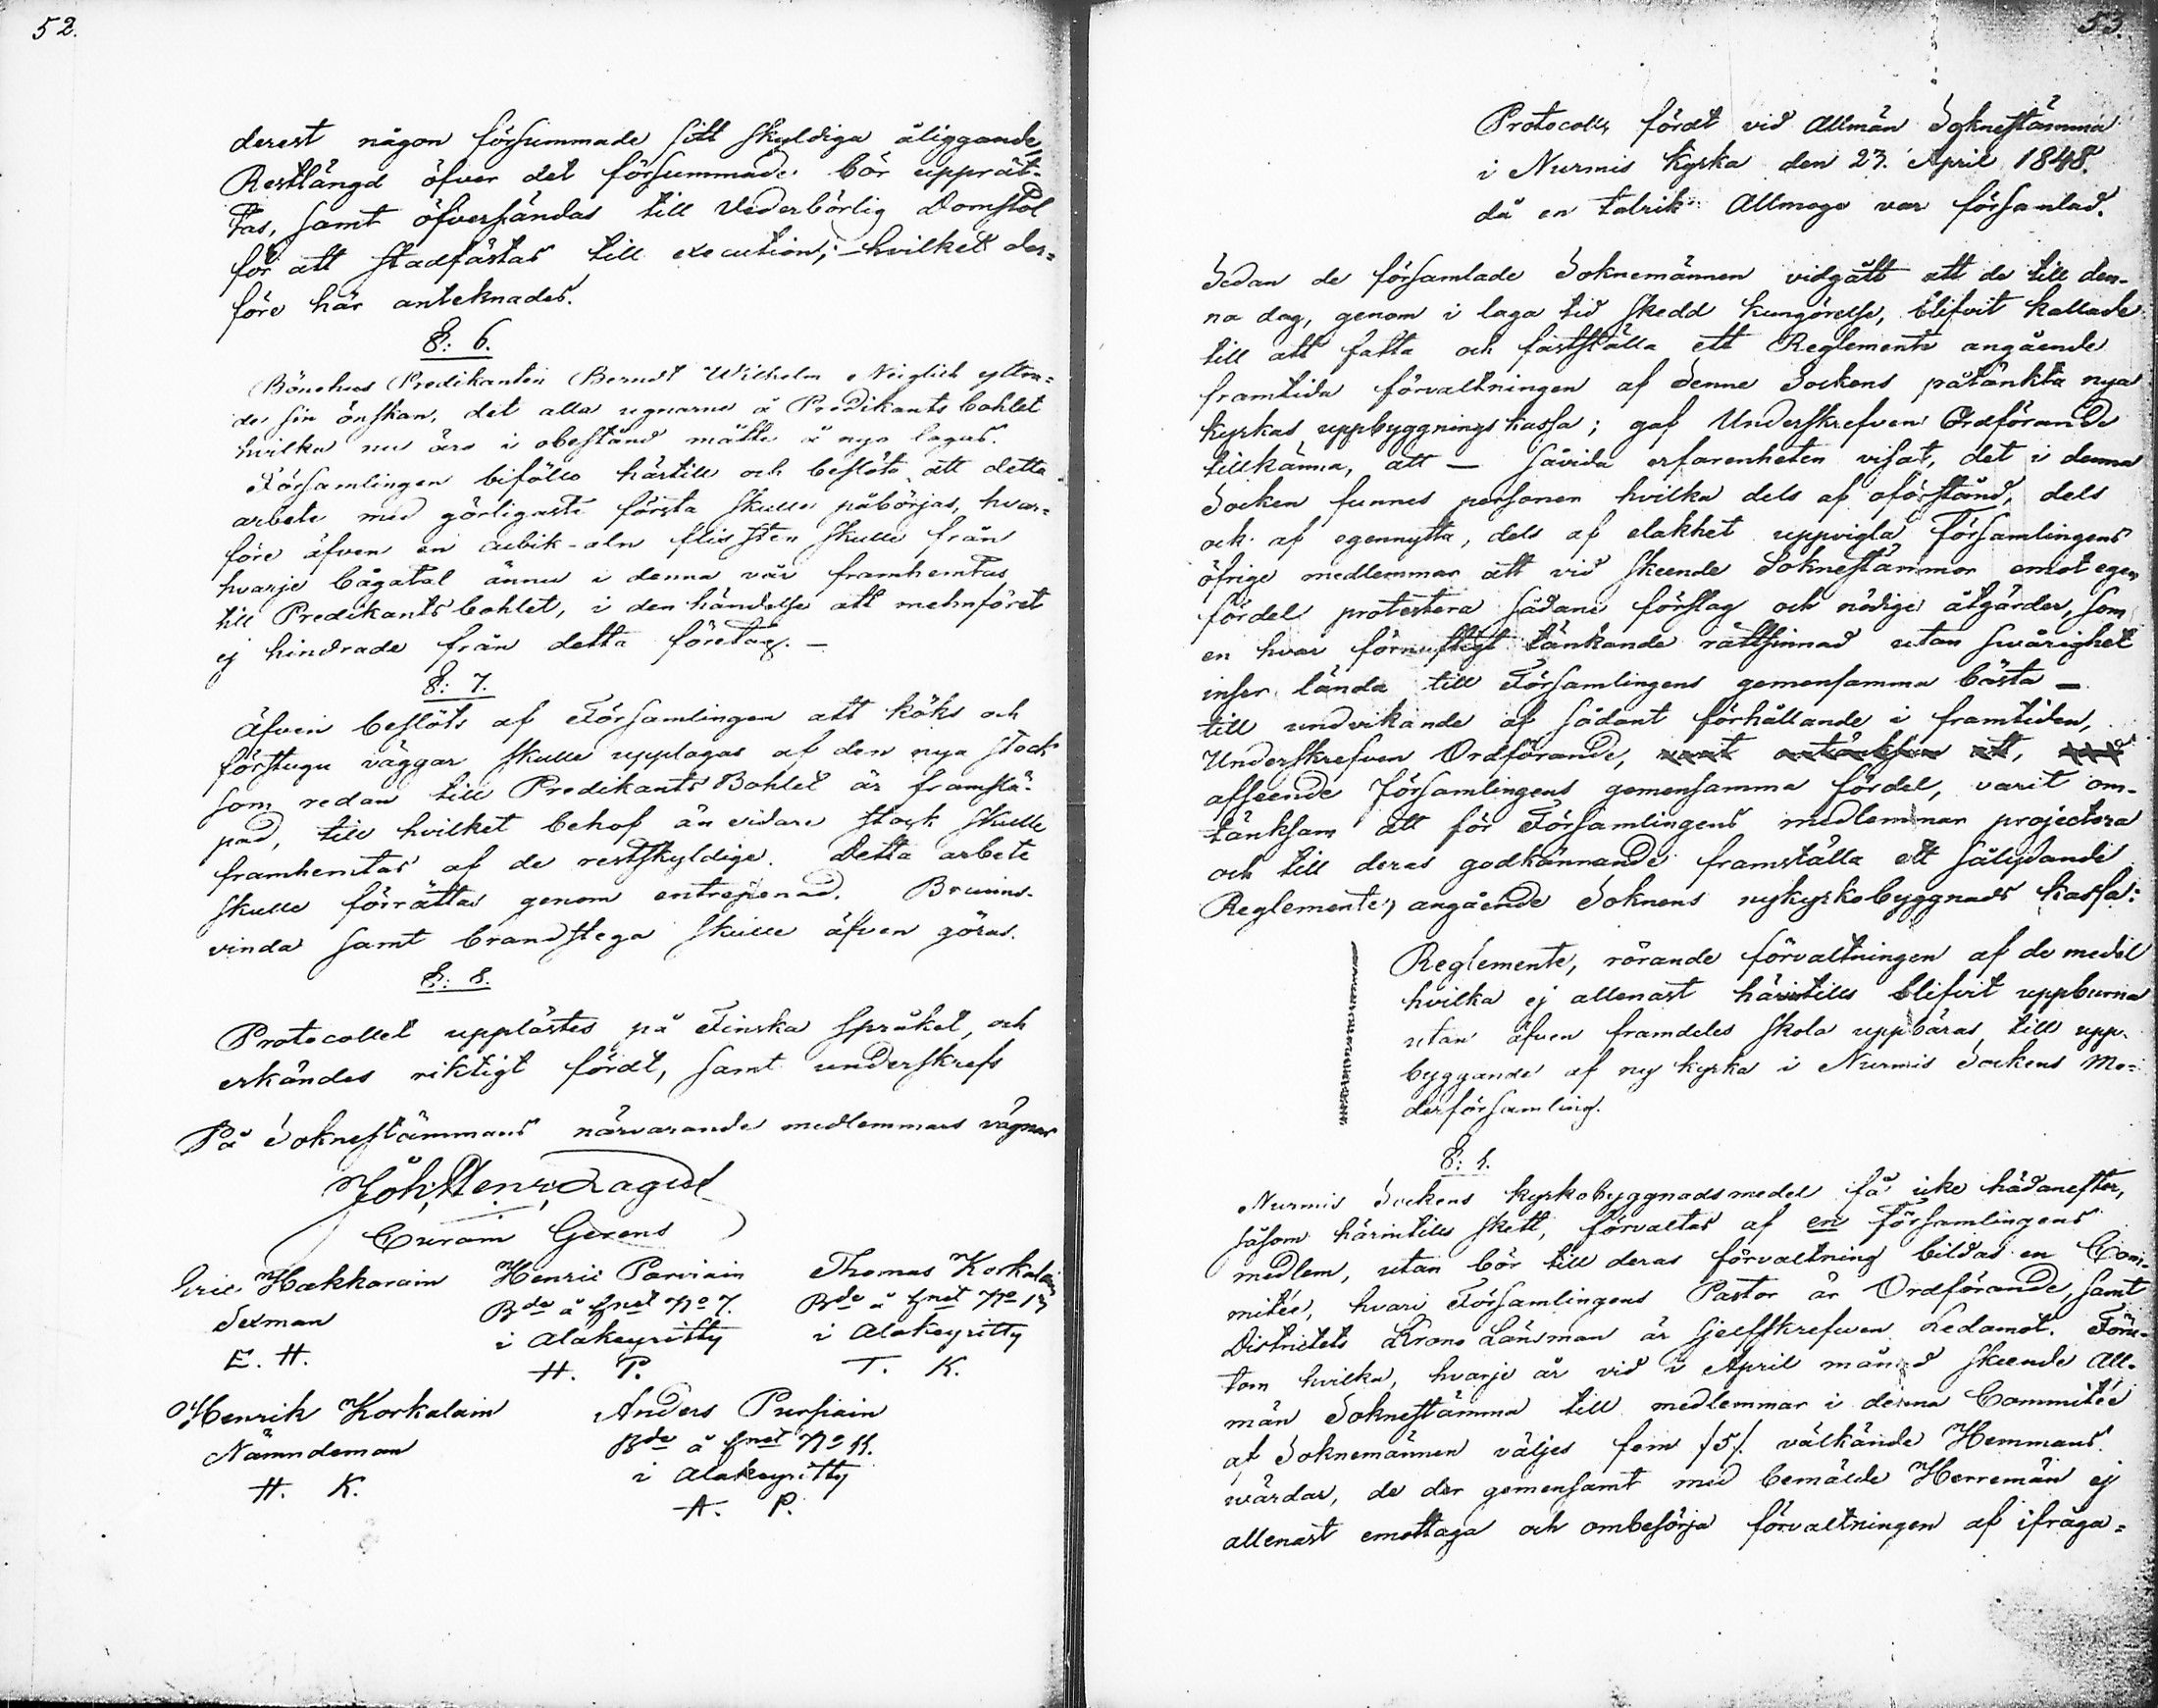 52.
derest någon försummade sitt skyldiga åliggande,
Restlängd öfver det försummade bör upprät-
tas, samt öfversändas till Vederbörlig Domstol
för att stadfästas till execution; – hvilket der-
före här anteknades.
§: 6.
Bönehus Predikanten Berndt Wilhelm Neiglick yttra-
de sin önskan, det alla ugnarne å Predikants bohlet
hvilka nu äro i obestånd måtte å nyo lagas.
Församlingen biföllo härtill och beslöto att detta
arbete med görligaste första skulle påbörjas, hvar-
före äfven en cubik-aln flis sten skulle från
hvarje bågatal ännu i denna vår framhemtas
till Predikantsbohlet, i den händelse att mehnföret
ej hindrade från detta företag. –
§: 7.
Äfven beslöts af Församlingen att köks och
förstugu väggar skulle upptagas af den nya stock
som redan till Predikants Bohlet är framslä-
pad, till hvilket behof än vidare stock skulle
framhemtas af de restskyldige. Detta arbete
skulle förrättas genom entreprenad. Bruns-
vinda samt brandstega skulle äfven göras.
§: 8.
Protocollet upplästes på Finska Språket, och
erkändes riktigt fördt, samt underskrefs
På Soknestämmans närvarande medlemmars vägnar
Joh. Henr. Lagus
Curam Gerens
Eric Hakkarain Henric Parviain Thomas Korkalain
Sexman Bde å hnet No 7. Bde å hnet No 13
E. H. i Alakeyritty i Alakeyritty
H. P. T. K.
Henrik Korkalain Anders Pursiain
Nämndeman Bde å hnet No 11.
H. K. i Alakeyritty
A. P.
53.
Protocoll, fördt vid Allmän Soknestämma
i Nurmis Kyrka den 23. April 1848.
då en talrik Allmoge var församlad.
Sedan de församlade Soknemännen vidgått att de till den-
na dag, genom i laga tid skedd kungörelse, blifvit kallade
till att fatta och fastställa ett Reglemente angående
framtida förvaltningen af denne Sockens påtänkta nya
kyrkas uppbyggnings kassa; gaf Underskrefven Ordförande
tillkänna, att – såvida erfarenheten visat, det i denna
Socken funnes personer hvilka dels af oförstånd, dels
och af egennytta, dels af elakhet uppvigla Församlingens
öfrige medlemmar att vid skeende Soknestämmor emot egen
fördel protestera sådane förslag och nödige åtgärder, som
en hvar förnuftigt tänkande rättsinnad utan swårighet
inser lända till Församlingens gemensamma bästa –
till undvikande af sådant förhållande i framtiden,
Underskrefven Ordförande,
afseende Församlingens gemensamma fördel, varit om-
tänksam att för Församlingens medlemmar projectera
och till deras godkännande framställa ett sålydande
Reglemente, angående Soknens nykyrkobyggnads kassa:
Reglemente, rörande förvaltningen af de medel
hvilka ej allenast härintills blifvit uppburna
utan äfven framdeles skola uppbäras, till upp-
byggande af ny kyrka i Nurmis Sockens Mo-
derförsamling.
§: 1.
Nurmis Sockens kyrkobyggnadsmedel få icke hädanefter,
såsom härintills skett, förvaltas af en Församlingens
medlem, utan bör till deras förvaltning bildas en Com-
mitée, hvari Församlingens Pastor är Ordförande, samt
Districtets Krono Länsman är sjelfskrefwen Ledamot. Föru-
tom hvilka, hvarje år vid i April månad skeende All-
män Soknestämma till medlemmar i denna Committée
af Soknemännen väljes fem /5/. välkände Hemmans
wärdar, de der gemensamt med bemälde Herremän ej
allenast emottaga och ombesörja förvaltningen af ifråga-